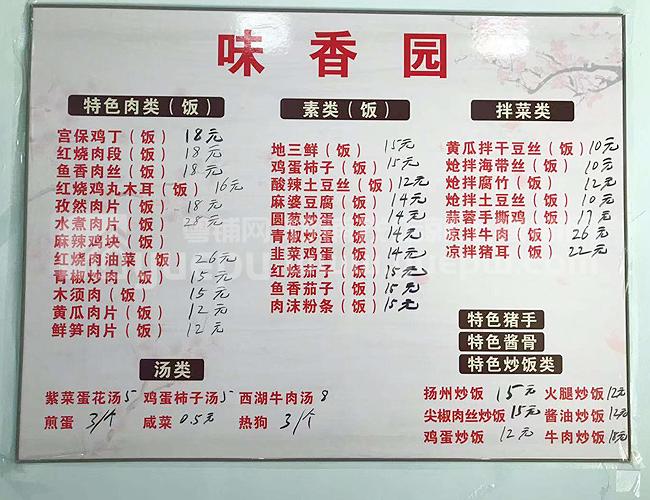 味香园
特色肉类(饭)
宫保鸡丁(饭) 18元
红烧肉段(饭) 18元
鱼香肉丝(饭) 18元
红烧鸡丸木耳(饭) 16元
孜然肉片(饭) 18元
水煮肉片(饭) 28元
麻辣鸡块(饭)
红烧肉油菜(饭) 26元
青椒炒肉(饭) 15元
木须肉(饭) 15元
黄瓜肉片(饭) 12元
鲜笋肉片(饭) 12元
素类(饭)
地三鲜(饭) 15元
鸡蛋柿子(饭) 15元
酸辣土豆丝(饭) 12元
麻婆豆腐(饭) 14元
圆葱炒蛋(饭) 14元
青椒炒蛋(饭) 14元
韭菜鸡蛋(饭) 14元
红烧茄子(饭) 15元
鱼香茄子(饭) 15元
肉沫粉条(饭) 15元
拌菜类
黄瓜拌干豆丝(饭) 10元
炝拌海带丝(饭) 10元
炝拌腐竹(饭) 12元
炝拌土豆丝(饭) 10元
蒜蓉手撕鸡(饭) 17元
凉拌牛肉(饭) 26元
凉拌猪耳(饭) 22元
汤类
紫菜蛋花汤5 鸡蛋柿子汤5 西湖牛肉汤8
煎蛋 3/个 咸菜 0.5元 热狗 3/个
特色猪手
特色酱骨
特色炒饭类
扬州炒饭 15元 火腿炒饭12元
尖椒肉丝炒饭15元 酱油炒饭12元
鸡蛋炒饭 12元 牛肉炒饭